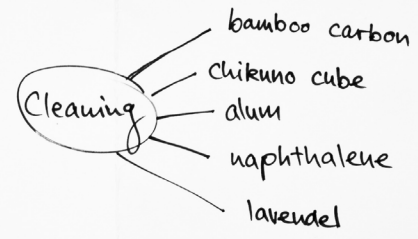 Cleaning
bamboo carbon
chikuno cube
alum
naphthalene
lavendel